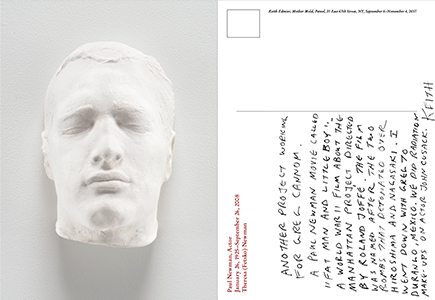 Keith Edmier, Mother Mold, Petzel, 35 East 67th Street, NY, September 6–November 4, 2017
Paul Newman, Actor
January 26, 1925–September 26, 2008
Theresa (Fetsko) Newman
ANOTHER PROJECT WORKING
FOR GREG CANNOM.
A PAUL NEWMAN MOVIE CALLED
"FAT MAN AND LITTLE BOY".
A WORLD WAR II FILM ABOUT THE
MANHATTAN PROJECT DIRECTED
BY ROLAND JOFFÉ. THE FILM
WAS NAMED AFTER THE TWO
BOMBS THAT DETONATED OVER
HIROSHIMA AND NAGASAKI. I
WENT DOWN WITH GREG TO
DURANGO, MEXICO. WE DID RADIATION
MAKE-UPS ON ACTOR JOHN CUSACK. KEITH